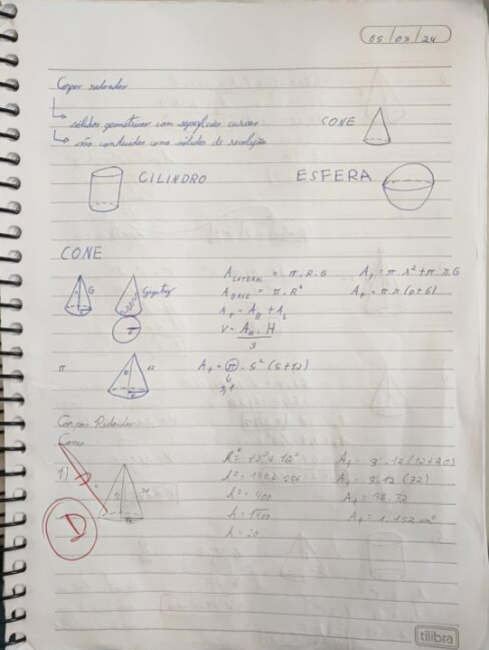 05/03/24
Corpos redondos
sólidos geométricos com superfícies curvas
são conhecidos como sólidos de revolução
CONE
CILINDRO
ESFERA
CONE
G
Geratriz
A LATERAL = π.R.G
A BASE = π.R²
A_T = A_B + A_L
V = A_B . H
3
A_T = π r² + π r.G
A_T = π r (r+G)
A_T = π . 5² (5+12)
3,1
Corpos Redondos
Cone
1)
D
h² = 12² + 16²
h² = 144 + 256
h² = 400
h = √400
h = 20
A_T = 3.12 (12+20)
A_T = 3.12 (32)
A_T = 36.32
A_T = 1.152 m²
tilibra